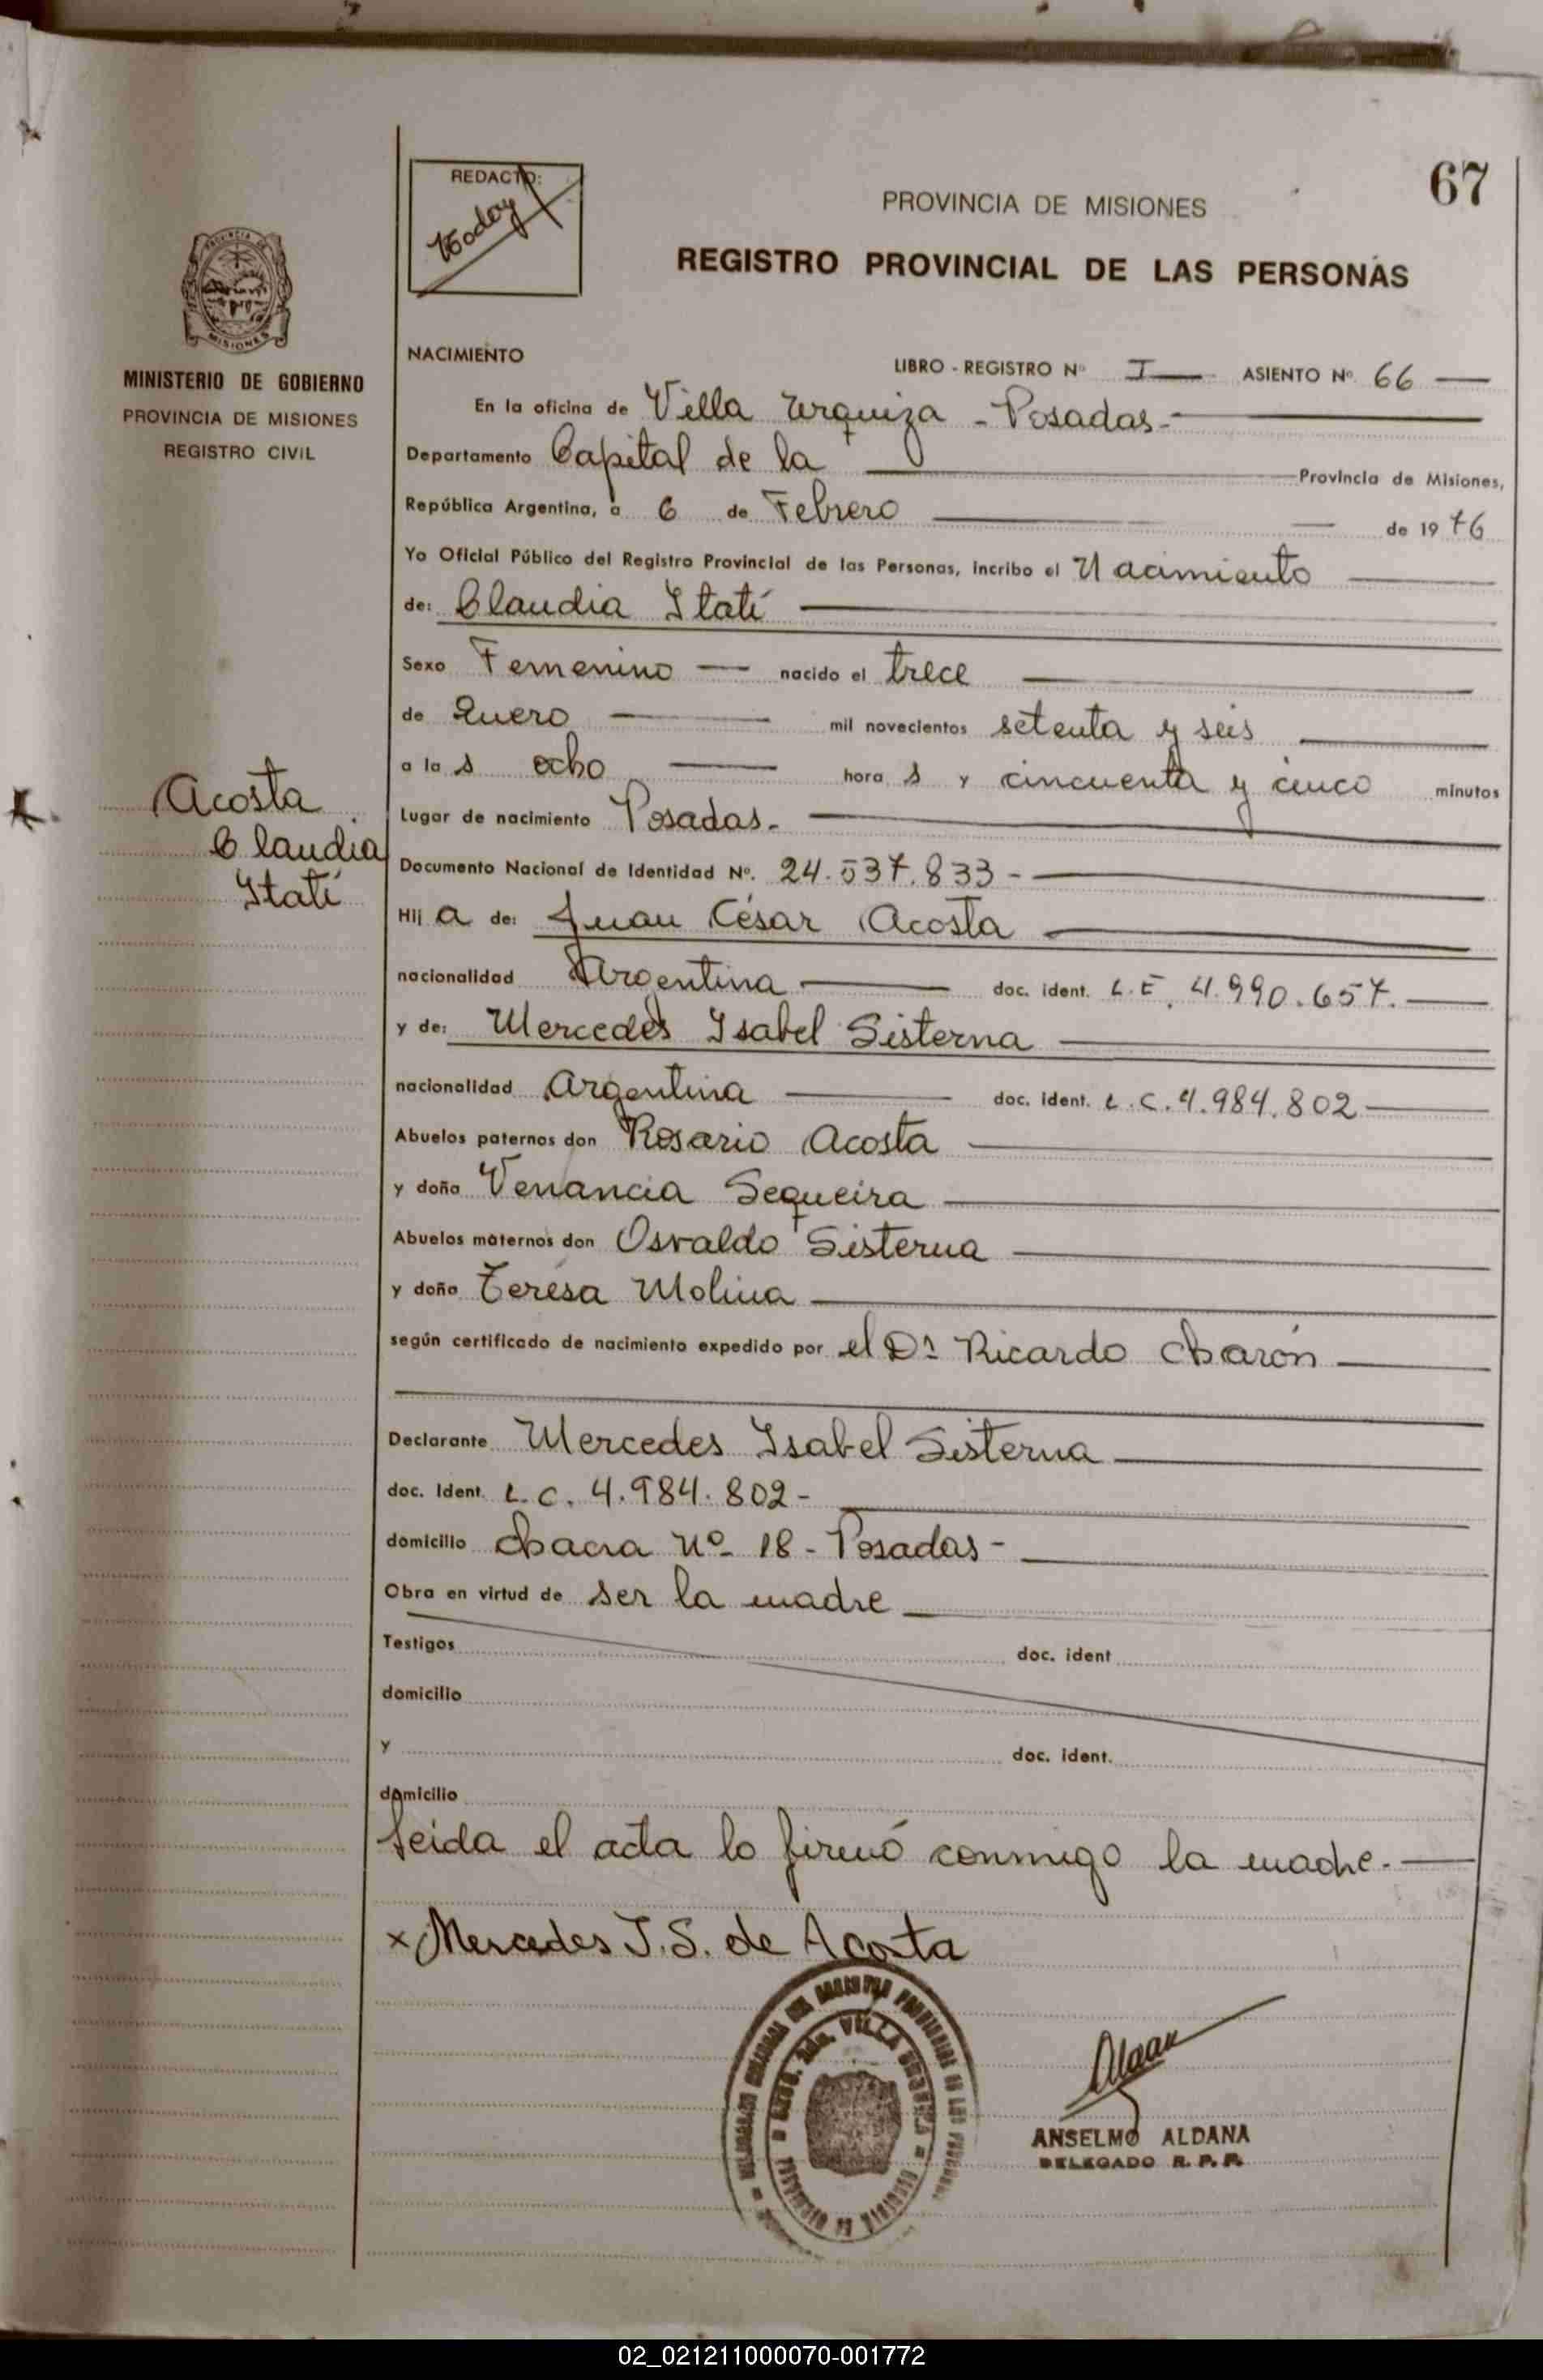 67
REDACTO:
PROVINCIA DE MISIONES
REGISTRO PROVINCIAL DE LAS PERSONAS
MISIONES
MINISTERIO DE GOBIERNO
PROVINCIA DE MISIONES
REGISTRO CIVIL
NACIMIENTO
LIBRO - REGISTRO Nº I ASIENTO Nº 66
En la oficina de Villa Urquiza - Posadas.-
Departamento Capital de la Provincia de Misiones,
República Argentina, a 6 de Febrero de 1976
Yo Oficial Público del Registro Provincial de las Personas, incribo el Nacimiento
de: Claudia Itatí
Sexo Femenino nacido el trece
de Enero mil novecientos setenta y seis
a las ocho horas y cincuenta y cinco minutos
Acosta
Claudia
Itatí
Lugar de nacimiento Posadas.-
Documento Nacional de Identidad Nº. 24.537.833-
Hija de: Juan César Acosta
nacionalidad Argentina doc. ident. L.E. 4.990.657.
y de: Mercedes Isabel Sisterna
nacionalidad Argentina doc. ident. L.C. 4.984.802
Abuelos paternos don Rosario Acosta
y doña Venancia Sequeira
Abuelos maternos don Osvaldo Sisterna
y doña Teresa Molina
según certificado de nacimiento expedido por el Dr Ricardo Charón
Declarante Mercedes Isabel Sisterna
doc. Ident. L.C. 4.984.802-
domicilio Chacra Nº 18 - Posadas-
Obra en virtud de ser la madre
Testigos doc. ident
domicilio
y doc. ident.
domicilio
Leida el acta lo firmó conmigo la madre.-
x Mercedes I.S. de Acosta
VILLA URQUIZA
ANSELMO ALDANA
DELEGADO R. P. P.
02_021211000070-001772